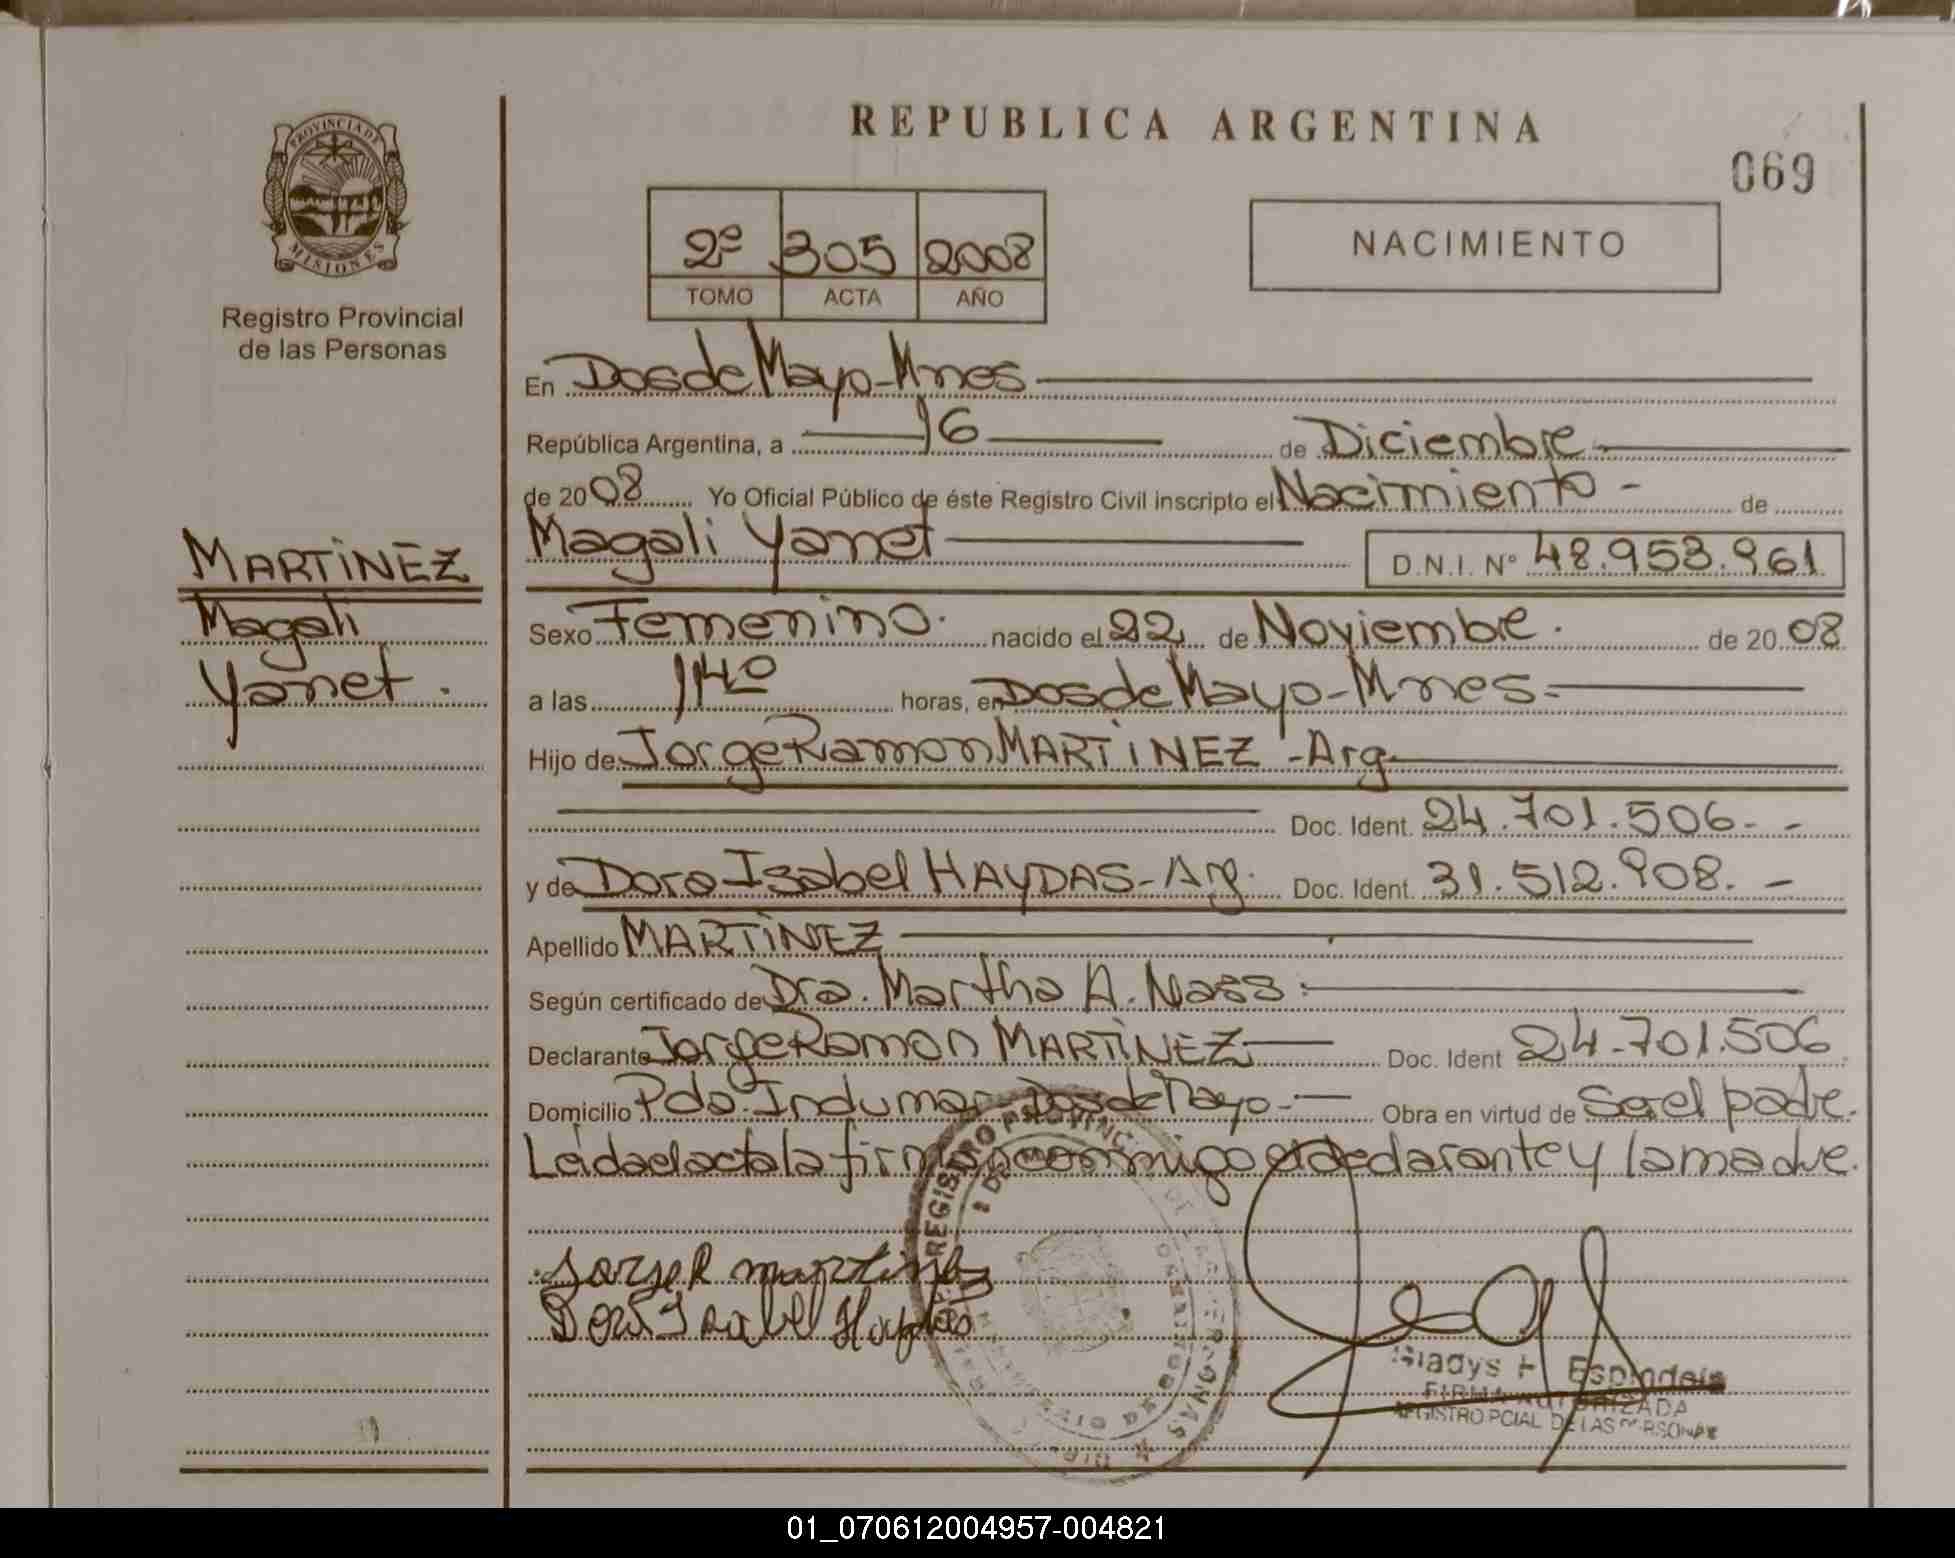 REPUBLICA ARGENTINA
069
PROVINCIA DE
MISIONES
Registro Provincial
de las Personas
2º 305 2008
TOMO ACTA AÑO
NACIMIENTO
En Dos de Mayo - Mnes
República Argentina, a 16 de Diciembre
de 2008 Yo Oficial Público de éste Registro Civil inscripto el Nacimiento - de
Magali Yanet D.N.I. Nº 48.953.961
MARTINEZ
Magali
Yanet.
Sexo Femenino. nacido el 22 de Noviembre. de 2008
a las 1140 horas, en Dos de Mayo - Mnes-
Hijo de Jorge Ramon MARTINEZ - Arg
Doc. Ident. 24.701.506- -
y de Dora Isabel HAYDAS - Arg. Doc. Ident. 31.512.908. -
Apellido MARTINEZ
Según certificado de Dra. Martha A. Nass
Declarante Jorge Ramon MARTINEZ Doc. Ident 24.701.506
Domicilio Pdo. Indumar Dos de Mayo - Obra en virtud de Ser el padre.
Leida el acta la firman conmigo el declarante y la madre.
Jorge R martinez
Dora Isabel Haydas
REGISTRO PROVINCIAL DE LAS PERSONAS
Gladys Espindola
FIRMA AUTORIZADA
REGISTRO PCIAL DE LAS PERSONAS
01_070612004957-004821